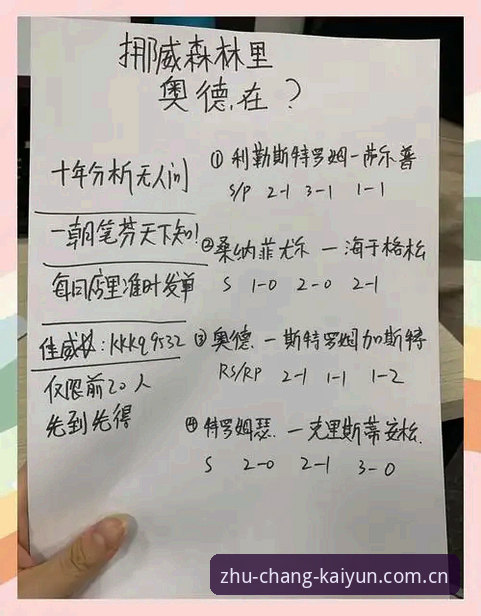 挪威森林里
奥德.在?
十年分析无人问
一朝笔芬天下知!
每日店里准时发单
佳威:kkkq9532
仅限前20人
先到先得
① 利勒斯特罗姆-萨尔普
S/P 2-1 3-1 1-1
② 桑纳菲尤尔 - 海于格松
S 1-0 2-0 2-1
③ 奥德. - 斯特罗姆加斯特
RS/RP 2-1 1-1 1-2
④ 特罗姆瑟. - 克里斯蒂安松.
S 2-0 2-1 3-0
zhu-chang-kaiyun.com.cn